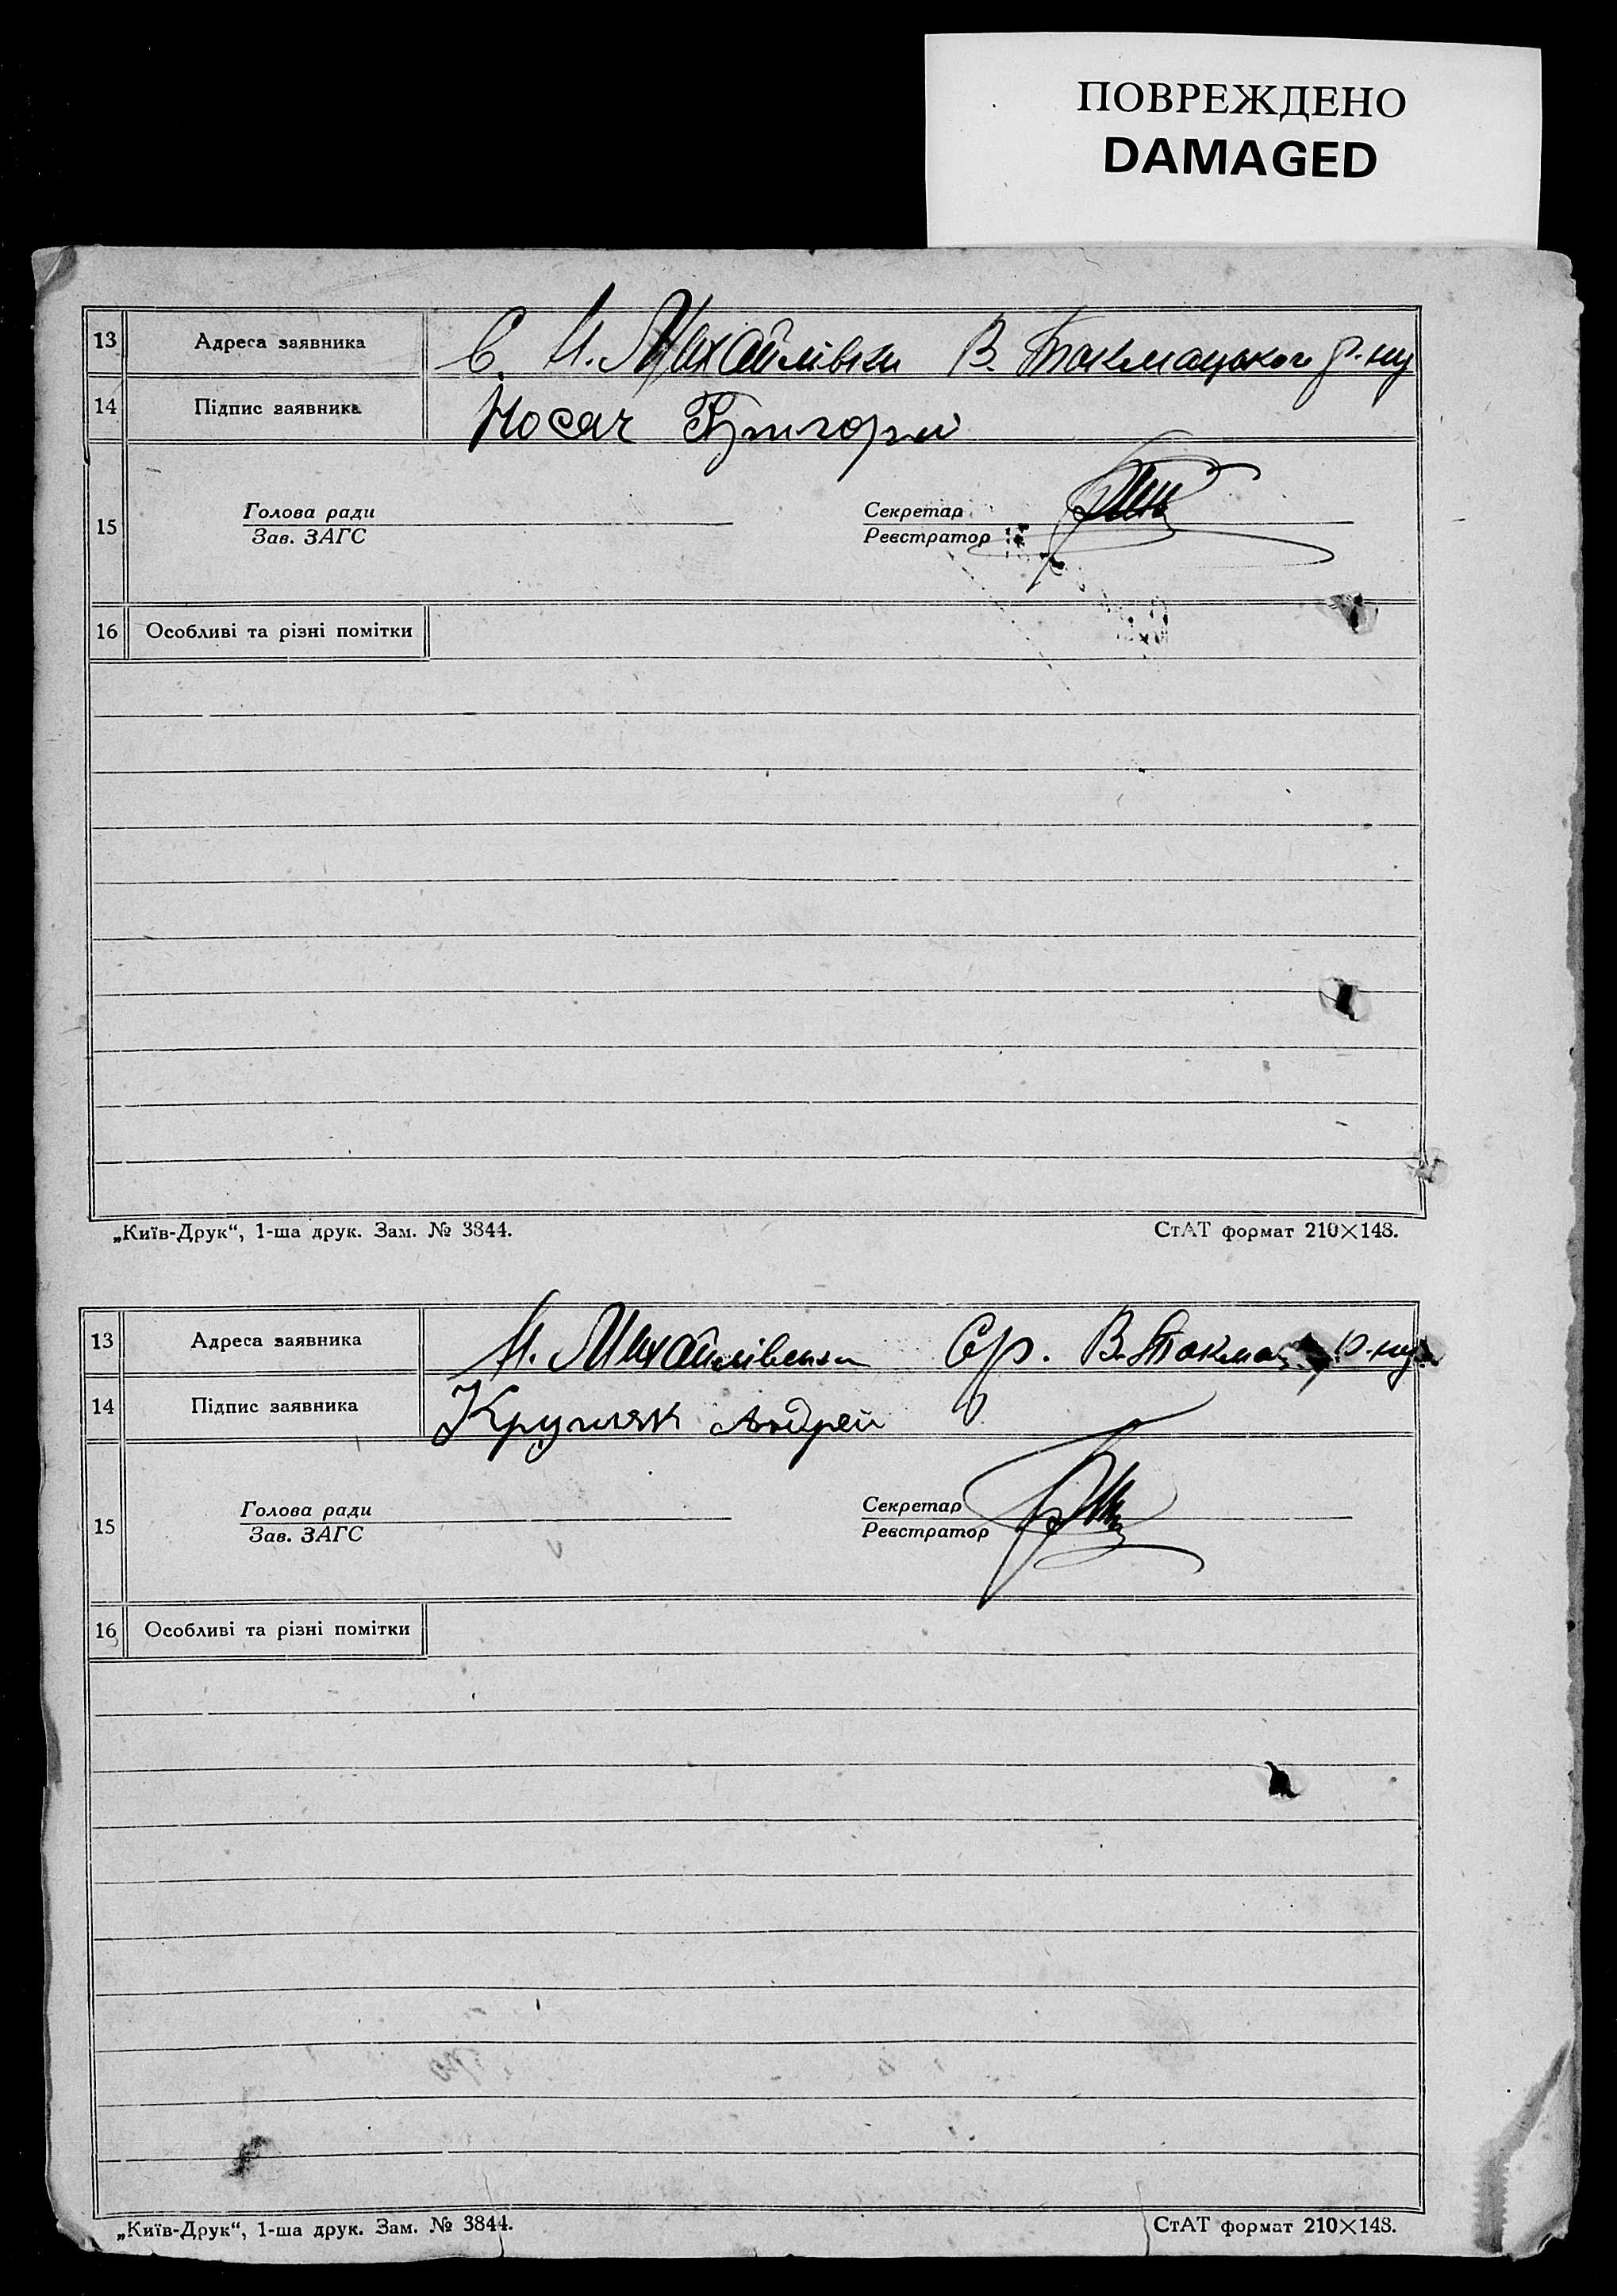 ПОВРЕЖДЕНО
DAMAGED
13 Адреса заявника С. Н. Михайлівки В. Токмацького р-ну
14 Підпис заявника Носач Григорій
15 Голова ради Секретар
Зав. ЗАГС Реєстратор
16 Особливі та різні помітки
„Київ-Друк“, 1-ша друк. Зам. № 3844. СтАТ формат 210×148.
13 Адреса заявника Н. Михайлівська С/р. В. Токмац р-ну
14 Підпис заявника Кругляк Андрей
15 Голова ради Секретар
Зав. ЗАГС Реєстратор
16 Особливі та різні помітки
„Київ-Друк“, 1-ша друк. Зам. № 3844. СтАТ формат 210×148.